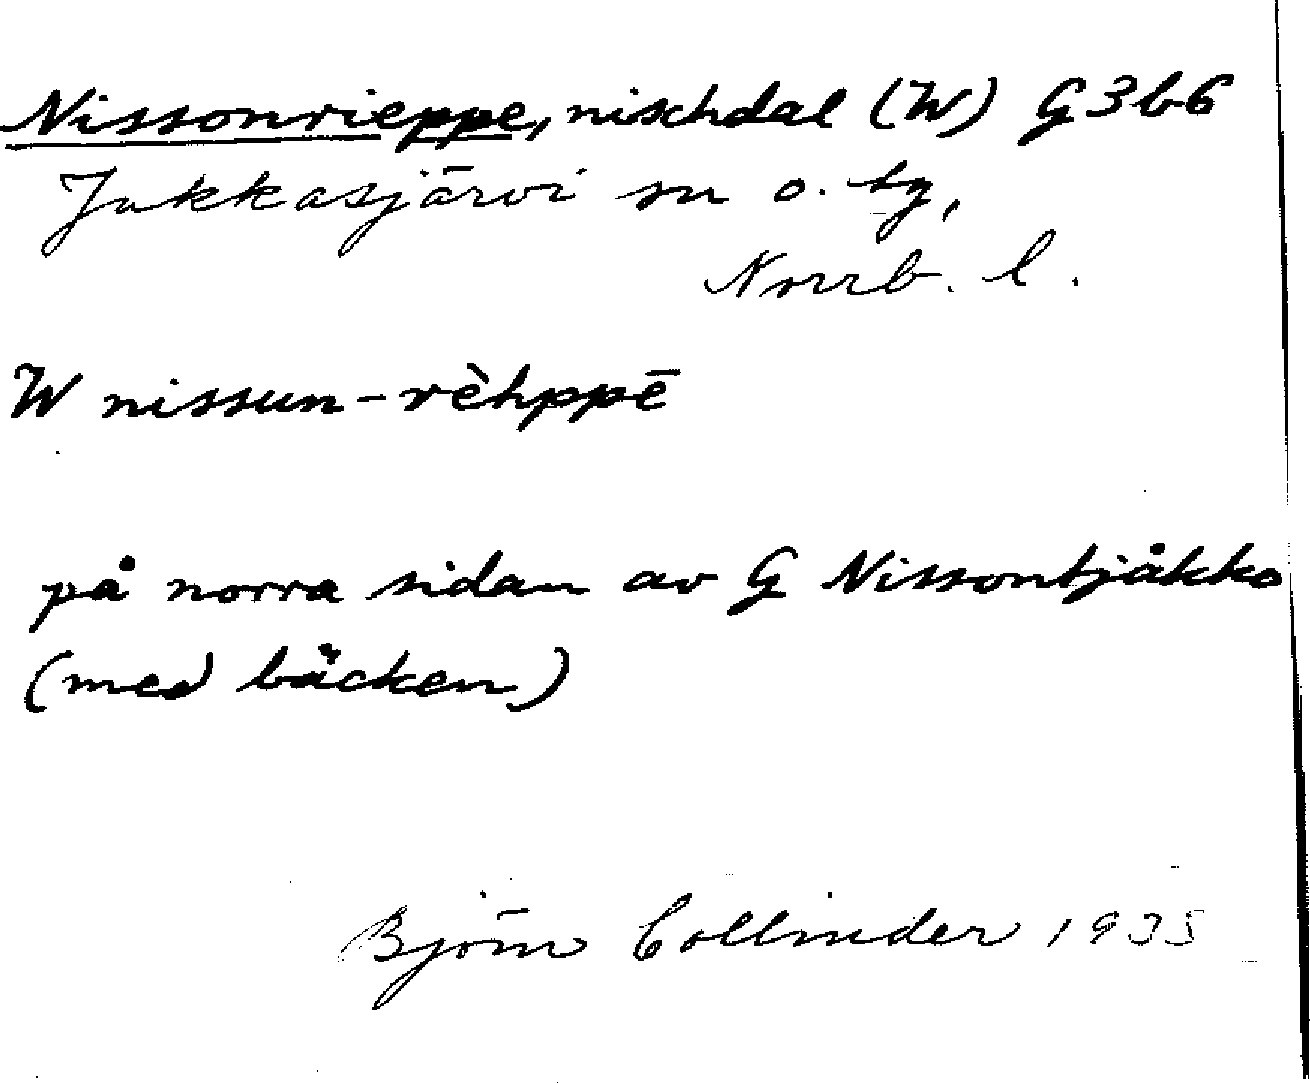 Nissonrieppe, nischdal (W) G3b6
Jukkasjärvi sn o. tg,
Norrb. l.
W nissun-rèhppē
på norra sidan av G Nissontjåkko
(med bäcken)
Björn Collinder 1935